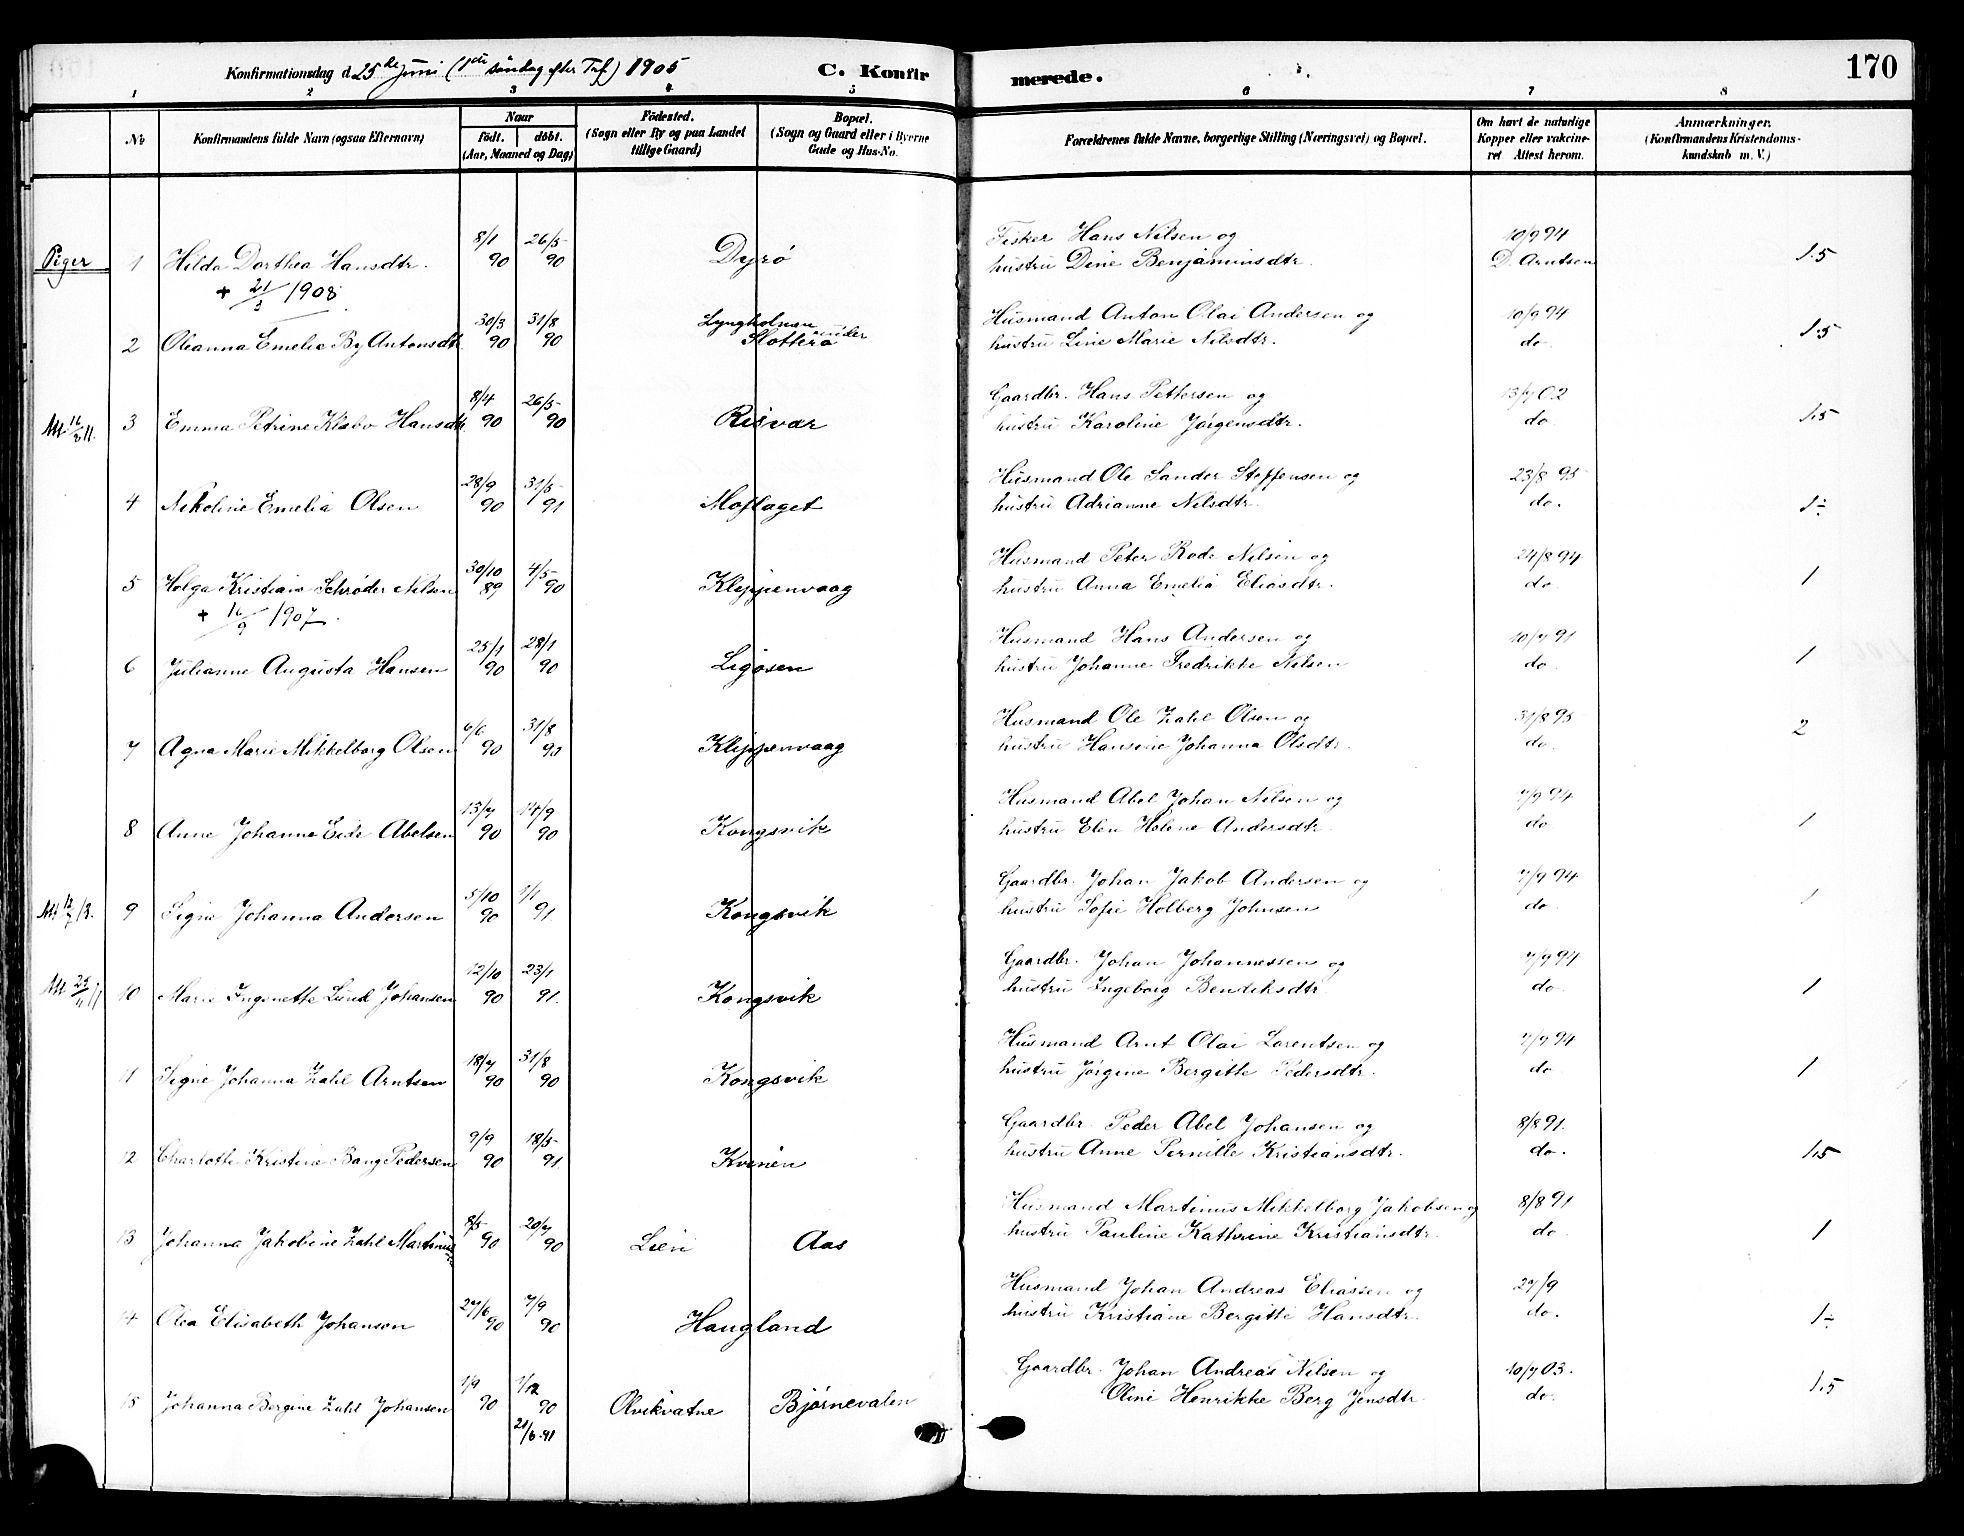 Konfirmationsdag d. 25de Juni (1ste søndag efter Tref.) 1905 C. Konfirmerede. 170
1 2 3 4 5 6 7 8
No Konfirmandens fulde Navn (ogsaa Efternavn) Naar født. døbt. (Aar, Maaned og Dag) Fødested. (Sogn eller By og paa Landet tillige Gaard) Bopæl. (Sogn og Gaard eller i Byerne Gade og Hus-No. Forældrenes fulde Navne, borgerlige Stilling (Næringsvei) og Bopæl. Om havt de naturlige Kopper eller vakcineret Attest herom. Anmærkninger. (Konfirmandens Kristendomskundskab m. V.)
Piger 1 Hilda Dorthea Hansdtr. 8/1 90 26/5 90 Dyrø Fisker Hans Nilsen og hustru Dine Benjaminsdtr. 10/9 94 D. Arntsen 1.5
+ 21/3 1908
2 Oleanna Emelie By Antonsdtr 30/3 90 31/8 90 Lyngholmen under Slotterø Husmand Anton Olai Andersen og hustru Line Marie Nilsdtr. 10/9 94 do. 1.5
Att 16/3 11. 3 Emma Petrine Klæbo Hansdtr. 8/4 90 26/5 90 Risvær Gaardbr. Hans Pettersen og hustru Karoline Jørgensdtr. 13/7 02 do 1.5
4 Nikoline Emelia Olsen 28/9 90 31/5 91 Moflaget Husmand Ole Sander Steffensen og hustru Adrianne Nilsdtr. 23/8 95 do. 1÷
5 Helga Kristiane Schrøder Nilsen 30/10 89 4/5 90 Kleppenvaag Husmand Peter Rode Nilsen og hustru Anna Emelia Eliasdtr. 24/8 94 do. 1
+ 16/9 1907.
6 Julianne Augusta Hansen 25/1 90 28/1 90 Ligøsen Husmand Hans Andersen og hustru Johanne Fredrikke Nilsen 10/7 91 do. 1
7 Agna Marie Mikkelborg Olsen 6/6 90 31/8 90 Kleppenvaag Husmand Ole Zahl Olsen og hustru Hansine Johanna Olsdtr. 31/8 95 do. 2
8 Anne Johanne Eide Abelsen 13/7 90 14/9 90 Kongsvik Husmand Abel Johan Nilsen og hustru Elen Helene Andersdtr. 7/9 94 do 1
Att 9 Signe Johanna Andersen 5/10 90 1/1 91 Kongsvik Gaardbr. Johan Jakob Andersen og hustru Sofie Holberg Johnsen 7/9 94 do. 1
Att 25/11 11 10 Marie Ingonette Lund Johansen 12/10 90 23/1 91. Kongsvik Gaardbr. Johan Johannessen og hustru Ingeborg Bendiksdtr. 7/9 94 do. 1
11 Signe Johanna Zahl Arntsen 18/7 90 31/8 90 Kongsvik Husmand Arnt Olai Lorentsen og hustru Jørgine Bergitte Pedersdtr. 7/9 94 do. 1
12 Charlotte Kristine Bang Pedersen 9/9 90 18/5 91 Kvinen Gaardbr. Peder Abel Johansen og hustru Anne Pernille Kristiansdtr. 8/8 91. do. 1.5
13 Johanna Jakobine Zahl Martinus 8/5 90 20/7 90 Lien Aas Husmand Martinus Mikkelborg Jakobsen og hustru Pauline Kathrine Kristiansdtr. 8/8 91 do 1
14 Olea Elisabeth Johansen 27/6 90 7/9 90 Haugland Husmand Johan Andreas Eliassen og hustru Kristiane Bergitte Hansdtr. 27/9 do. 1÷
15 Johanna Bergine Zahl Johansen 1/9 90 1/12 90 21/6 91 Olvikvatne Bjørnevalen Gaardbr. Johan Andreas Nilsen og Oline Henrikke Berg Jensdtr. 10/7 03. do. 1.5